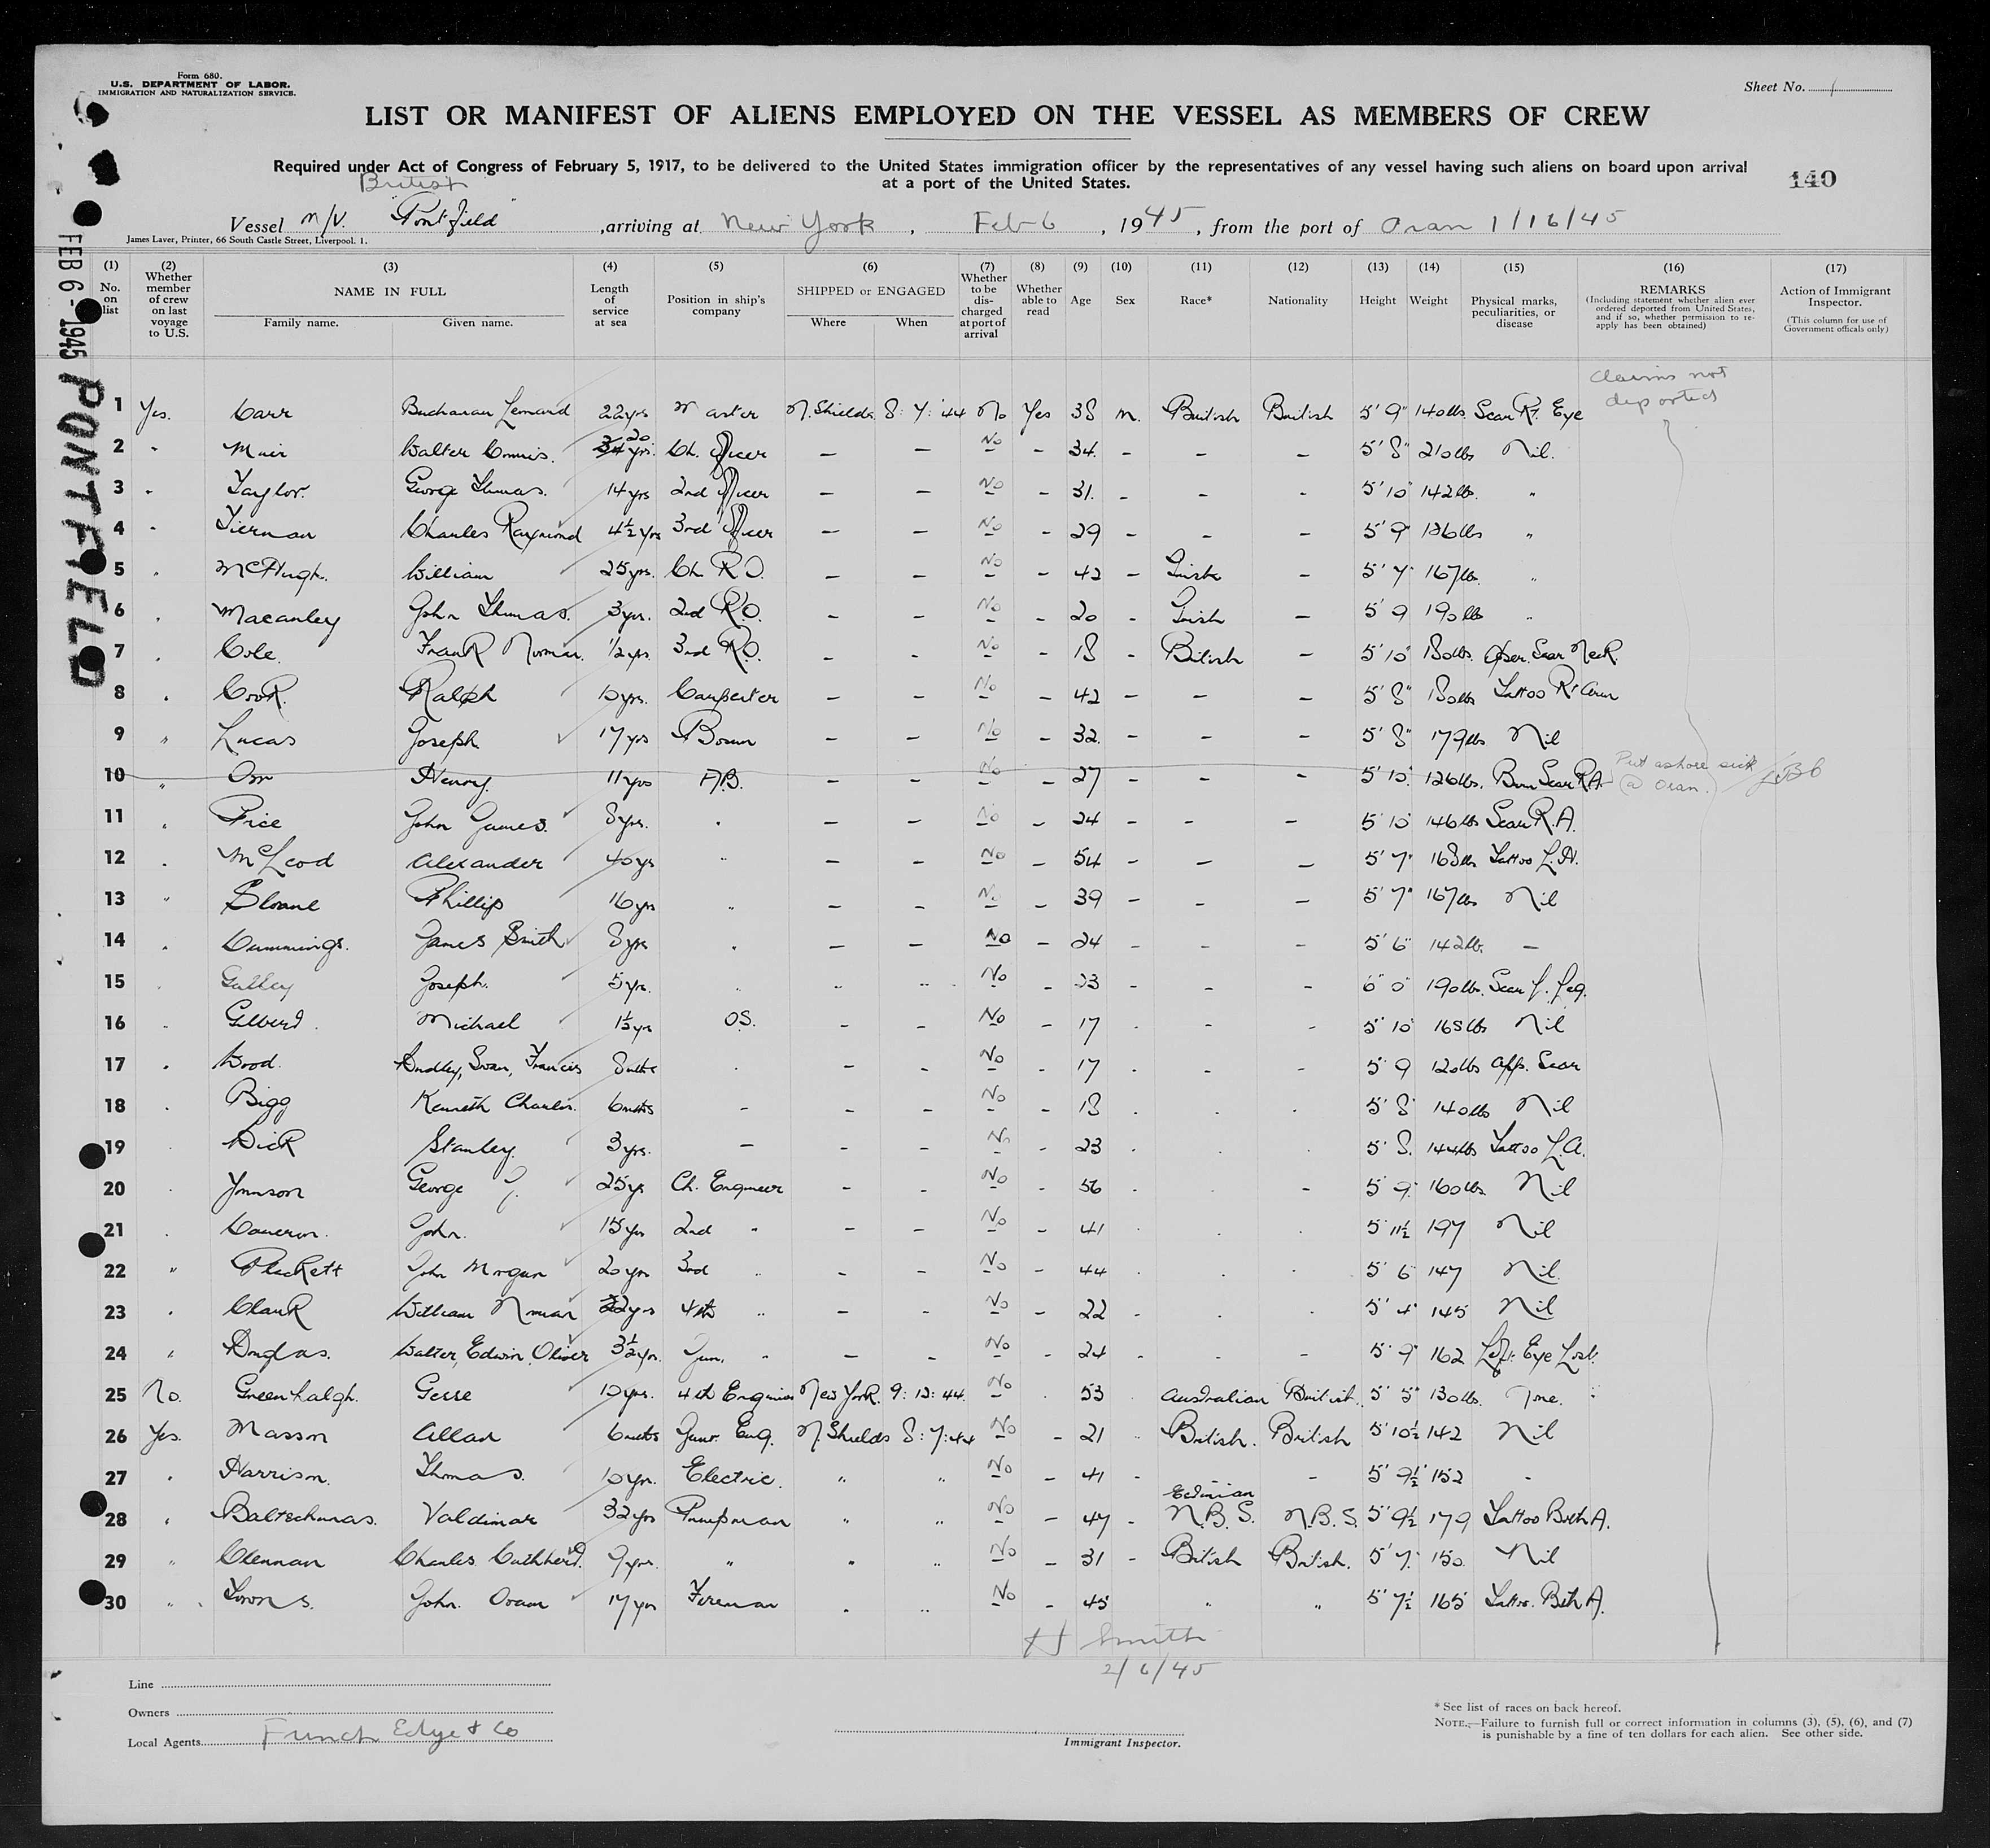 Form 680.
U.S. DEPARTMENT OF LABOR.
IMMIGRATION AND NATURALIZATION SERVICE.
Sheet No. 1
LIST OR MANIFEST OF ALIENS EMPLOYED ON THE VESSEL AS MEMBERS OF CREW
Required under Act of Congress of February 5, 1917, to be delivered to the United States immigration officer by the representatives of any vessel having such aliens on board upon arrival
at a port of the United States.
140
British
Vessel M/V. "Pontfield" , arriving at New York , Feb 6 , 1945 , from the port of Oran 1/16/45
James Laver, Printer, 66 South Castle Street, Liverpool. 1.
FEB 6 - 1945 PONTFIELD
(1) No. on list (2) Whether member of crew on last voyage to U.S. (3) NAME IN FULL Family name. Given name. (4) Length of service at sea (5) Position in ship's company (6) SHIPPED or ENGAGED Where When (7) Whether to be discharged at port of arrival (8) Whether able to read (9) Age (10) Sex (11) Race* (12) Nationality (13) Height (14) Weight (15) Physical marks, peculiarities, or disease (16) REMARKS (Including statement whether alien ever ordered deported from United States, and if so, whether permission to re-apply has been obtained) (17) Action of Immigrant Inspector. (This column for use of Government officals only)
Claims not deported
1 Yes. Carr Buchanan Lennard 22 yrs Master N. Shields 8:7:44 No Yes 38 M. British British 5' 9" 140 lbs. Scar Rt. Eye
2 " Muir Walter 20 yrs. Ch. Officer — — No — 34. — — — 5' 8" 210 lbs Nil.
3 " Taylor. George Thomas. 14 yrs 2nd Officer — — No — 31. — — — 5' 10" 142 lb. "
4 " Tiernan Charles Raymond 4½ yrs 3rd Officer — — No — 29 — — — 5' 9" 126 lbs "
5 " McHugh. William 25 yrs. Ch. R.O. — — No — 42 — Irish — 5' 7" 167 lbs. "
6 " Macauley John Thomas. 3 yrs. 2nd R.O. — — No — 20 — Irish — 5' 9 190 lbs "
7 " Cole. Frank Norman. ½ yrs. 3rd R.O. — — No — 18 — British — 5' 10" 130 lbs. Oper. Scar Neck
8 " Cook. Ralph 10 yrs. Carpenter — — No — 42 — — — 5' 8" 130 lbs Tattoo Rt Arm
9 " Lucas Joseph 17 yrs Bosun — — No — 32. — — — 5' 8" 179 lbs Nil
10 " Orr Henry. 11 yrs A.B. — — No — 27 — — — 5' 10" 126 lbs. Burn Scar R.A. Put ashore sick @ Oran.
11 " Price John James. 8 yrs. " — — No — 24 — — — 5' 10" 146 lbs Scar R. A.
12 " McLeod Alexander 40 yrs " — — No — 54 — — — 5' 7" 168 lbs Tattoo L. A.
13 " Sloane Phillip 16 yrs " — — No — 39 — — — 5' 7" 167 lbs Nil
14 " Cummings. James Smith 8 yrs " — — No — 24 — — — 5' 6" 142 lb. —
15 " Gulley Joseph. 5 yrs. " " " No — 23 — — — 6' 0" 190 lbs. Scar L. Leg.
16 " Michael 1½ yrs O.S. — — No — 17 — — — 5' 10" 168 lbs Nil
17 " Wood. Dudley, Francis 8 mths " — — No — 17 — — — 5' 9 120 lbs App. Scar
18 " Bigg Kenneth Charles. 6 mths — — — No — 18 — — — 5' 8" 140 lbs Nil
19 " Dick Stanley. 3 yrs. — — — No — 23 — — — 5' 8. 144 lbs Tattoo L.A.
20 " Johnson George 25 yrs Ch. Engineer — — No — 56 — — — 5' 9" 160 lbs. Nil
21 " Cameron. John. 15 yrs 2nd " — — No — 41 — — — 5' 11½ 197 Nil
22 " Plackett John Morgan 20 yrs 3rd " — — No — 44 — — — 5' 6" 147 Nil.
23 " Clark William Norman 4th " — — No — 22 — — — 5' 4" 145 Nil
24 " Douglas. Walter, Edwin, Oliver 3½ yrs. Jun. " — — No — 24 — — — 5' 9" 162 Left Eye Lost.
25 No. Greenhalgh. 10 yrs. 4th Engineer New York. 9:12:44. No 53 Australian British. 5' 5" 130 lbs.
26 Yes. Masson Allan 6 mths Junr. Eng. N. Shields 8:7:44 No — 21 " British. British 5' 10½ 142 Nil
27 " Harrison. Thomas. 10 yrs. Electric. " " No — 41 — — 5' 9½" 152 "
28 " Valdimar 32 yrs Pumpman " " No — 47 — Estonian N.B.S. N.B.S. 5' 9½ 179 Tattoo Both A.
29 " Clennan Charles Cuthbert. 9 yrs. " " " No — 31 — British British. 5' 7" 150 Nil
30 " John 17 yrs Fireman " " No — 45 " " 5' 7½ 165 Tattoo. Both A.
H Smith
2/6/45
Line
Owners
Local Agents Funch Edye & Co
Immigrant Inspector.
* See list of races on back hereof.
NOTE.—Failure to furnish full or correct information in columns (3), (5), (6), and (7)
is punishable by a fine of ten dollars for each alien. See other side.